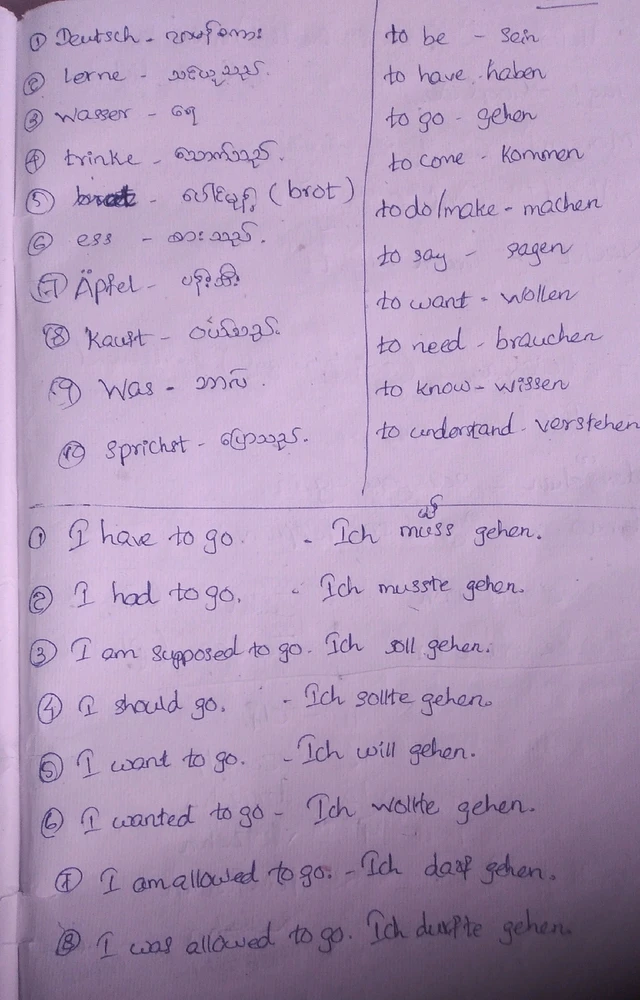 ① Deutsch - ဂျာမန်စကား
② Lerne - သင်ယူသည်.
③ Wasser - ရေ
④ trinke - သောက်သည်.
⑤ - ပေါင်မုန့် (brot)
⑥ ess - စားသည်.
⑦ Äpfel - ပန်းသီး
⑧ Kaust - ဝယ်သည်.
⑨ Was - ဘာလဲ.
⑩ Sprichst - ပြောသည်.
to be - sein
to have - haben
to go - gehen
to come - kommen
to do/make - machen
to say - sagen
to want - wollen
to need - brauchen
to know - wissen
to understand - verstehen
① I have to go - Ich muss gehen.
② I had to go. - Ich musste gehen.
③ I am supposed to go. Ich soll gehen.
④ I should go. - Ich sollte gehen.
⑤ I want to go. - Ich will gehen.
⑥ I wanted to go - Ich wollte gehen.
⑦ I am allowed to go. - Ich darf gehen.
⑧ I was allowed to go. Ich durfte gehen.